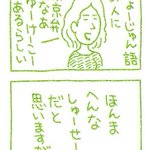 ょーじゅん語
みに
京弁
なあ
ゅーけこー
あるらしい
ほんま
へんな
しゅーせー
だと
思いますが